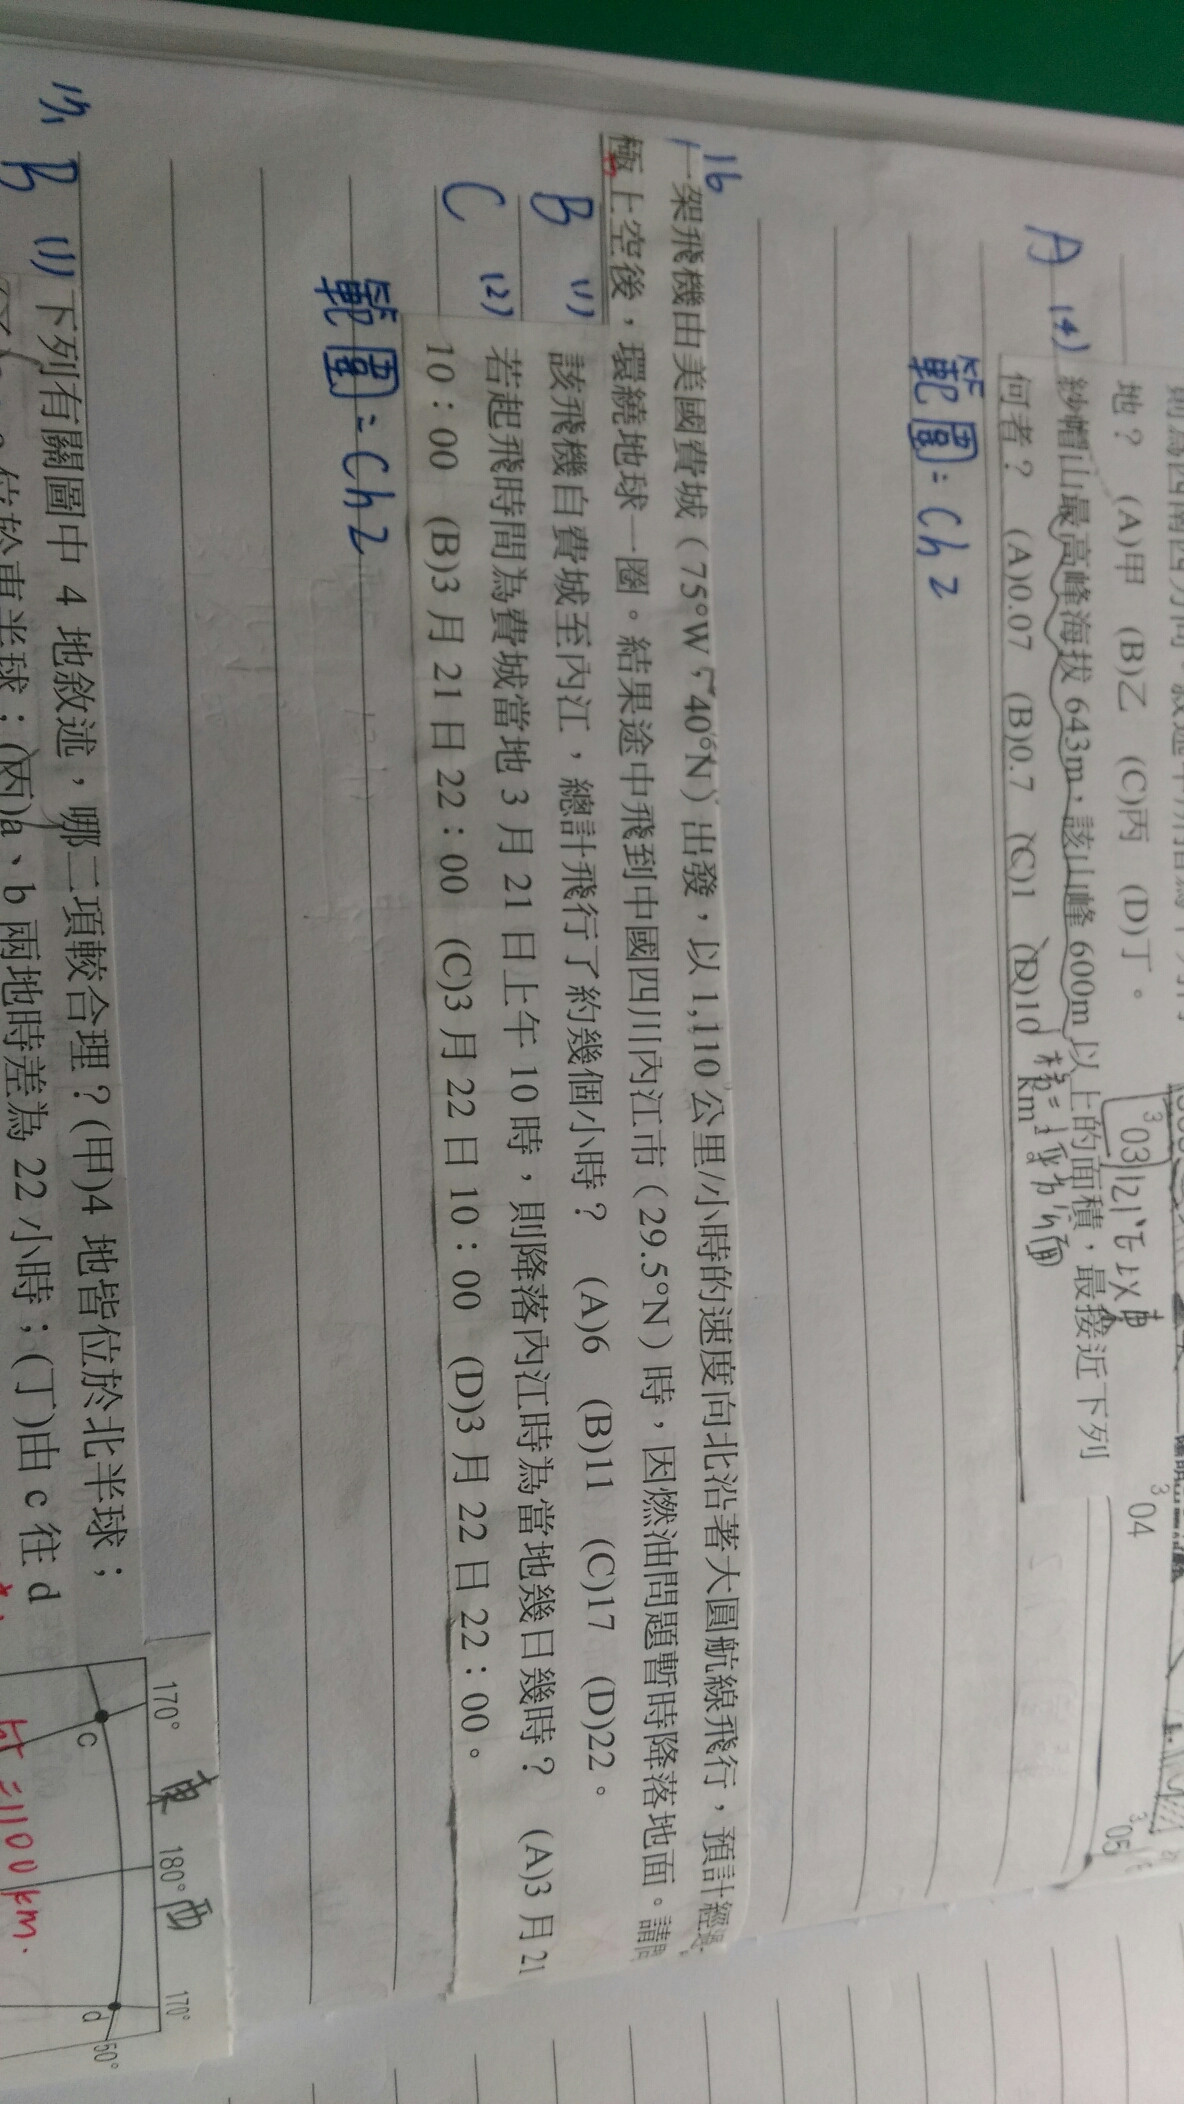 地？ (A)甲 (B)乙 (C)丙 (D)丁。
A (4) 紗帽山最高峰海拔 643m，該山峰 600m 以上的面積，最接近下列
何者？ (A)0.07 (B)0.7 (C)1 (D)10 km²
303
304
305
範圍：Ch 2
16
一架飛機由美國費城（75°W，40°N）出發，以 1,110 公里/小時的速度向北沿著大圓航線飛行，預計經
極上空後，環繞地球一圈。結果途中飛到中國四川內江市（29.5°N）時，因燃油問題暫時降落地面。請問
B (1) 該飛機自費城至內江，總計飛行了約幾個小時？ (A)6 (B)11 (C)17 (D)22。
C (2) 若起飛時間為費城當地 3 月 21 日上午 10 時，則降落內江時為當地幾日幾時？ (A)3 月 21
10：00 (B)3 月 21 日 22：00 (C)3 月 22 日 10：00 (D)3 月 22 日 22：00。
範圍：Ch 2
B (1) 下列有關圖中 4 地敘述，哪二項較合理？(甲)4 地皆位於北半球；
位於東半球；(丙)a、b 兩地時差為 22 小時；(丁)由 c 往 d
170° 東 180° 西 170°
c
d
50°
1100 km.